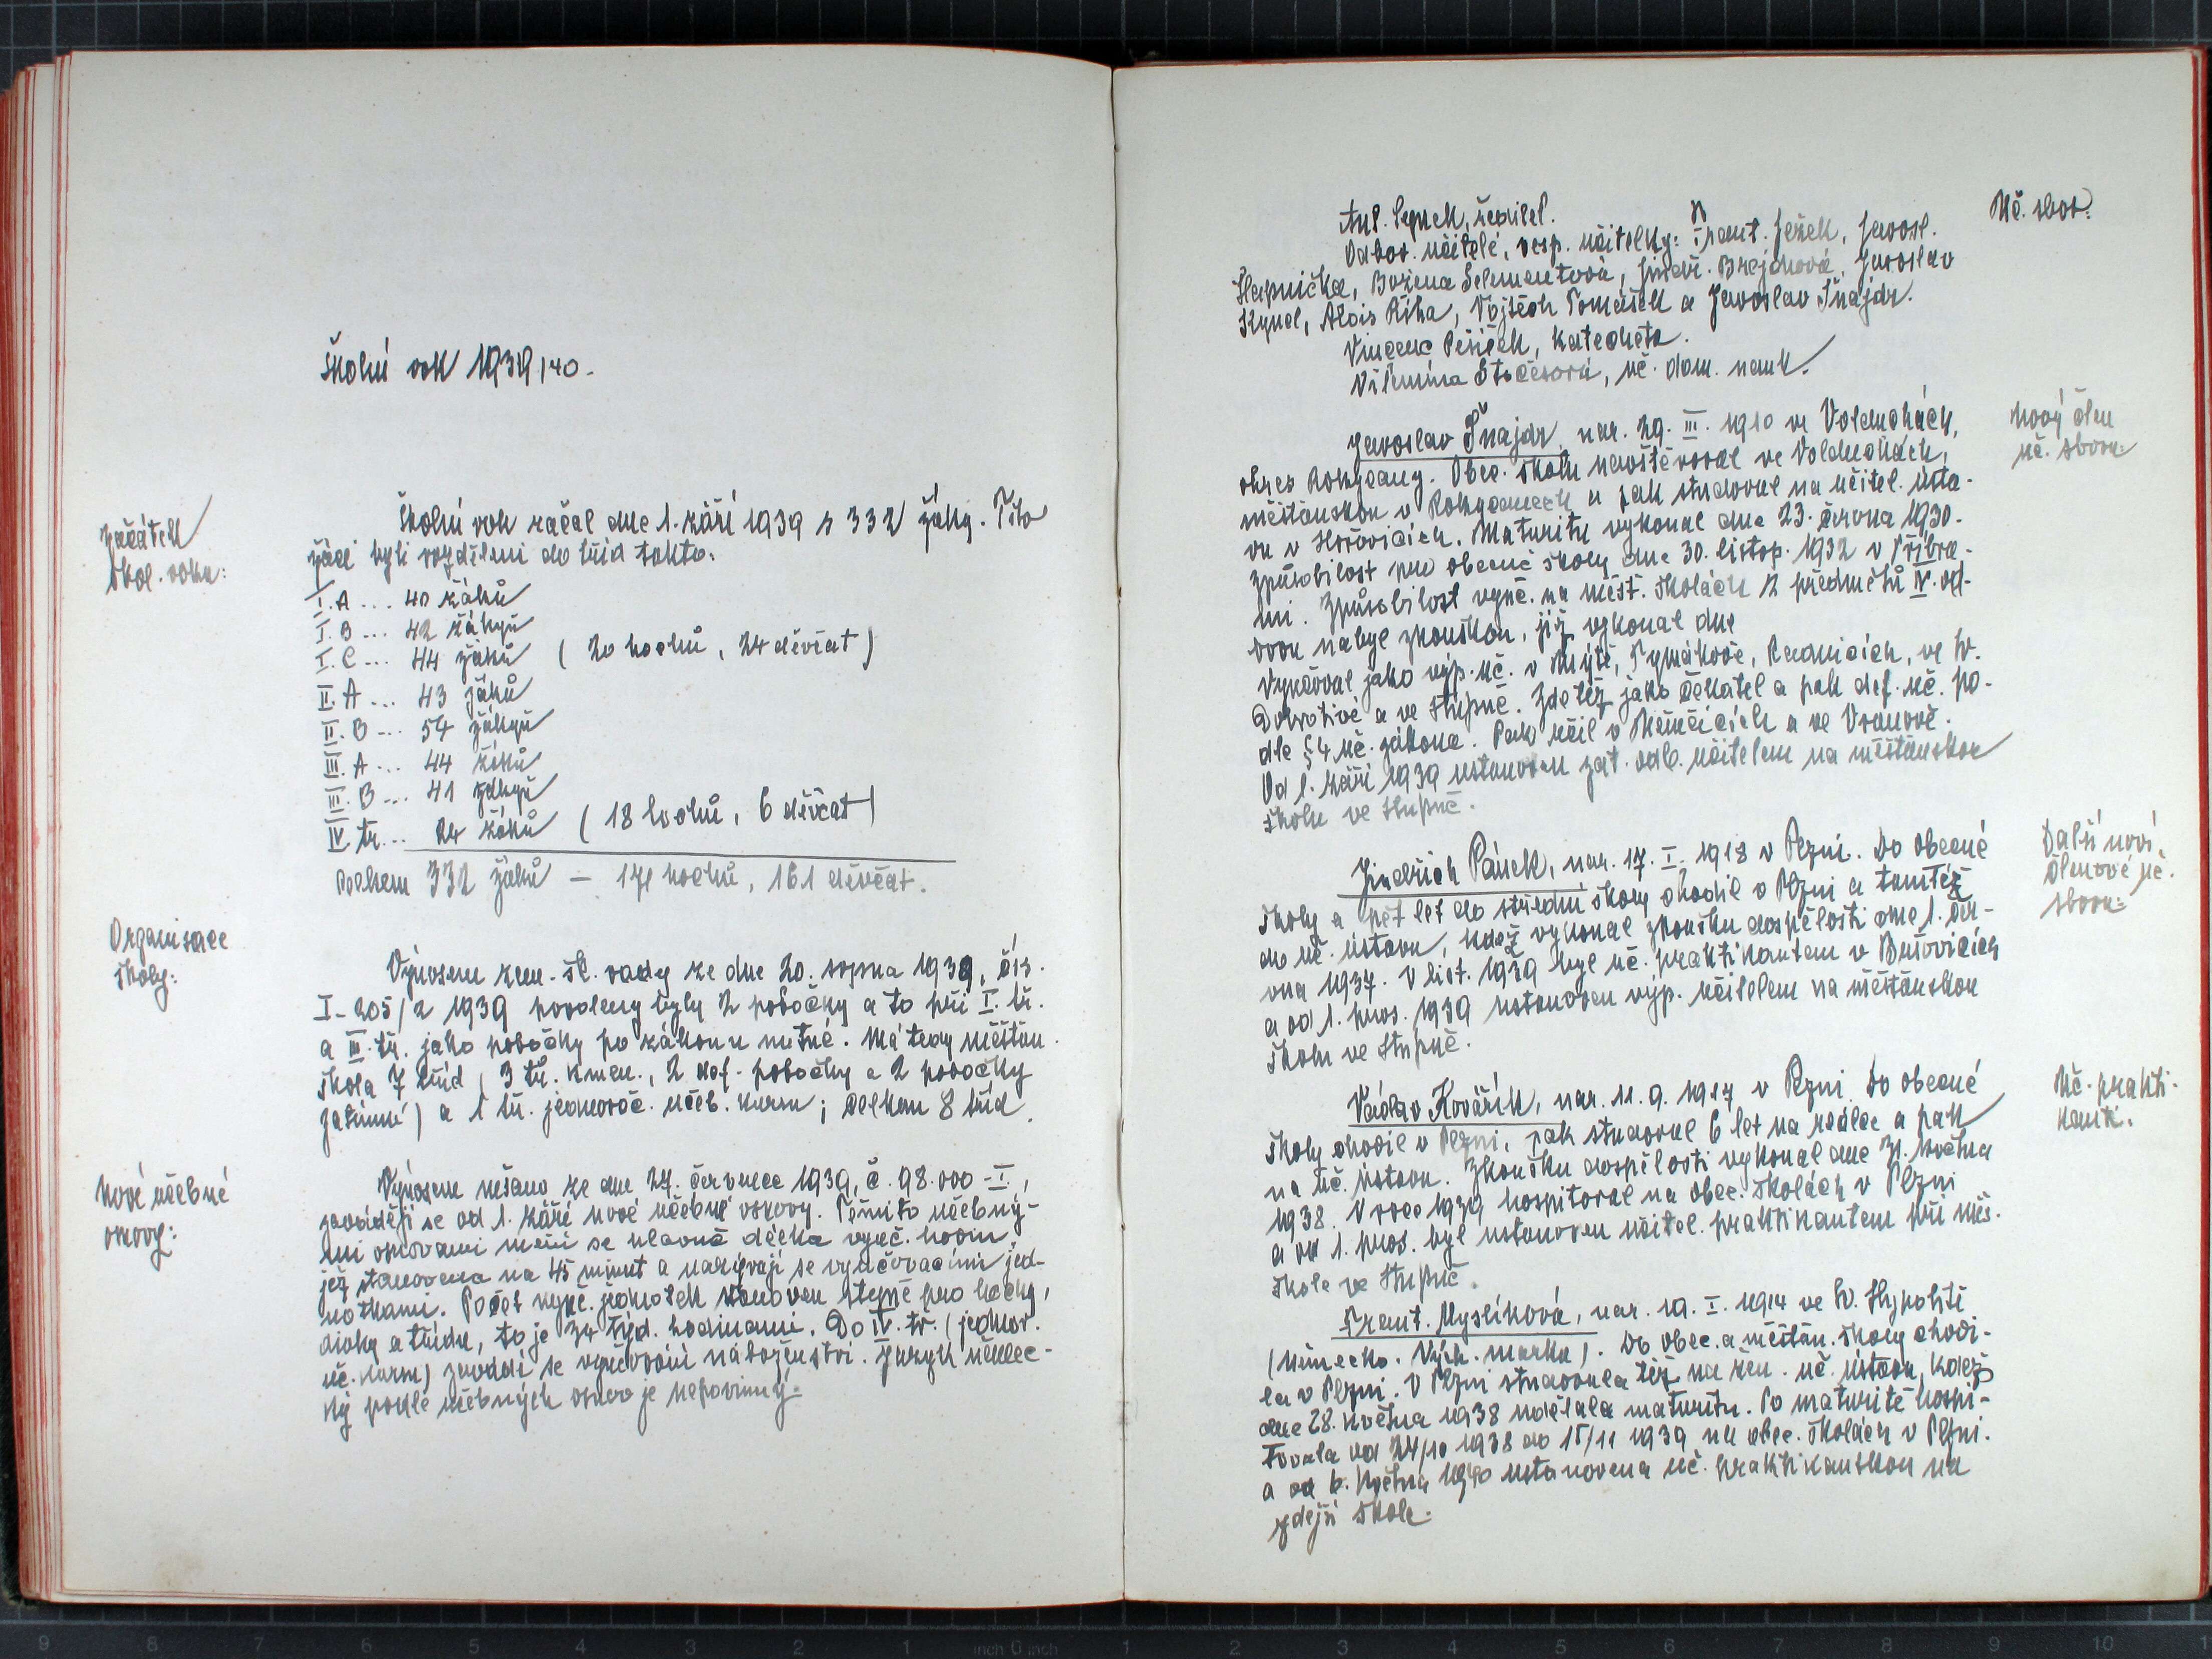 Školní rok 1939/40.
Začátek
škol. roku:
Školní rok začal dne 1. září 1939 s 332 žáky. Tito
žáci byli rozděleni do tříd takto:
I. A ... 40 žáků
I. B ... 42 žákyň
I. C ... 44 žáků ( 20 hochů, 24 děvčat )
II. A ... 43 žáků
II. B ... 54 žákyň
III. A ... 44 žáků
III. B ... 41 žákyň
IV. tř. ... 24 žáků ( 18 hochů, 6 děvčat )
Celkem 332 žáků — 171 hochů, 161 děvčat.
Organisace
školy:
Výnosem zem. šk. rady ze dne 20. srpna 1939, čís.
I-205/2 1939 povoleny byly 2 pobočky a to při I. tř.
a III. tř. jako pobočky po zákonu nutné. Má tedy měšťan.
škola 7 tříd ( 3 tř. kmen., 2 def. pobočky a 2 pobočky
zatímní) a 1 tř. jednoroč. učeb. kursu; celkem 8 tříd.
Nové učebné
osnovy:
Výnosem mšano ze dne 24. července 1939, č. 98.000-I,
zavádějí se od 1. září nové učebné osnovy. Těmito učebný-
mi osnovami mění se hlavně délka vyuč. hodin,
jež stanovena na 45 minut a nazývají se vyučovacími jed-
notkami. Počet vyuč. jednotek stanoven stejně pro hochy,
dívky a třídu, to je 34 týd. hodinami. Do IV. tř. (jednor.
uč. kursu) zavádí se vyučování náboženství. Jazyk němec-
ký podle učebných osnov je nepovinný.
Uč. sbor:
Ant. Cepnek, ředitel.
Odbor. učitelé, resp. učitelky: Frant. Ježek, Jarosl.
Šlapnička, Božena Selementová, Jindř. Brejchová, Jaroslav
Kynel, Alois Říha, Vojtěch Tomášek a Jaroslav Šnajdr.
Vincenc Pešíček, katecheta.
Vilemína Stočesová, uč. dom. nauk.
Nový člen
uč. sboru:
Jaroslav Šnajdr, nar. 29. III. 1910 ve Volduchách,
okres Rokycany. Obec. školu navštěvoval ve Volduchách,
měšťanskou v Rokycanech a pak studoval na učitel. ústa-
vu v Hořovicích. Maturitu vykonal dne 23. června 1930.
Způsobilost pro obecné školy dne 30. listop. 1932 v Příbra-
mi. Způsobilost vyuč. na měšť. školách z předmětů IV. od-
boru nabyl zkouškou, již vykonal dne
Vyučoval jako výp. uč. v Mýtě, Tymákově, Radnicích, ve Sv.
Dobrotivé a ve Stupně. Zde též jako čekatel a pak def. uč. po-
dle § 4 uč. zákona. Pak učil v Němčicích a ve Vranově.
Od 1. září 1939 ustanoven zat. odb. učitelem na měšťanskou
školu ve Stupně.
Další noví
členové uč.
sboru:
Jindřich Pánek, nar. 17. I. 1918 v Plzni. Do obecné
školy a pět let do střední školy chodil v Plzni a tamtéž
do uč. ústavu, kdež vykonal zkoušku dospělosti dne 1. čer-
vna 1937. V list. 1939 byl uč. praktikantem v Bušovicích
a od 1. pros. 1939 ustanoven výp. učitelem na měšťanskou
školu ve Stupně.
Uč. prakti-
kanti.
Václav Kovářík, nar. 11. 9. 1917 v Plzni. Do obecné
školy chodil v Plzni, pak studoval 6 let na reálce a pak
na uč. ústavu. Zkoušku dospělosti vykonal dne 31. května
1938. V roce 1939 hospitoval na obec. školách v Plzni
a od 1. pros. byl ustanoven učitel. praktikantem při měš.
škole ve Stupně.
Frant. Myslíková, nar. 19. I. 1914 ve Sv. Hypolitě
(Německo. Vých. marka). Do obec. a měšťan. školy chodi-
la v Plzni. V Plzni studovala též na žen. uč. ústavu, kdež
dne 28. května 1938 udělala maturitu. Po maturitě hospi-
tovala od 24/10 1938 do 15/11 1939 na obec. školách v Plzni.
a od 6. května 1940 ustanovena uč. praktikantkou na
zdejší škole.